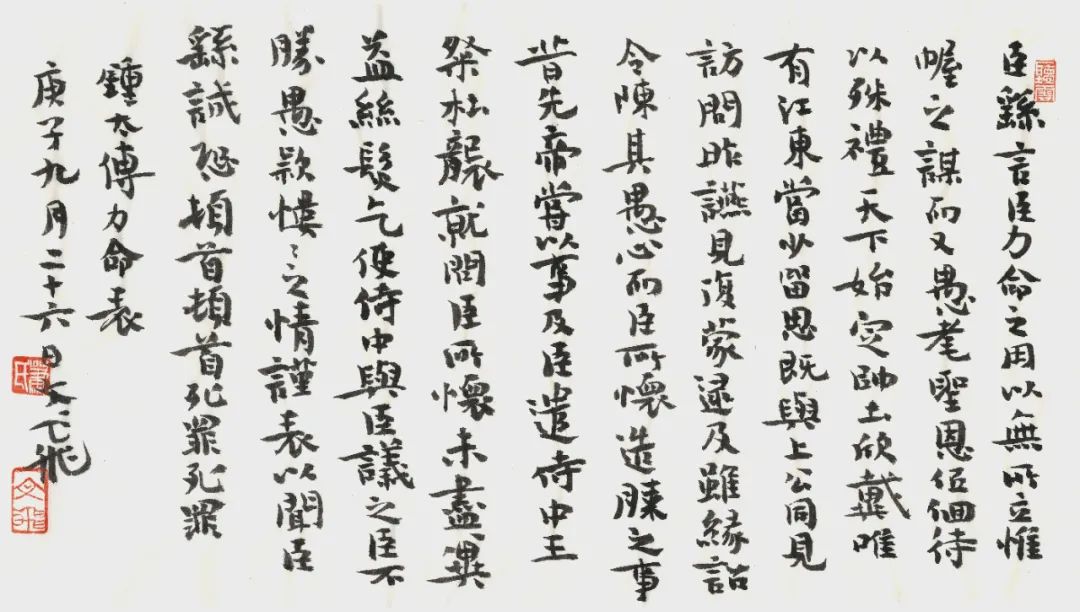 臣繇言臣力命之用以無所立惟
幄之謀而又愚耄聖恩低徊待
以殊禮天下始定帥土欣戴唯
有江東當少留思既與上公同見
訪問昨讌見復蒙逮及雖緣詔
令陳其愚心而臣所懷造膝之事
昔先帝嘗以事及臣遣侍中王
粲杜襲就問臣所懷未盡冀
益絲髮乞使侍中與臣議之臣不
勝愚款慺〻之情謹表以聞臣
繇誠恐頓首頓首死罪死罪
鍾太傅力命表
庚子九月二十六日文飛